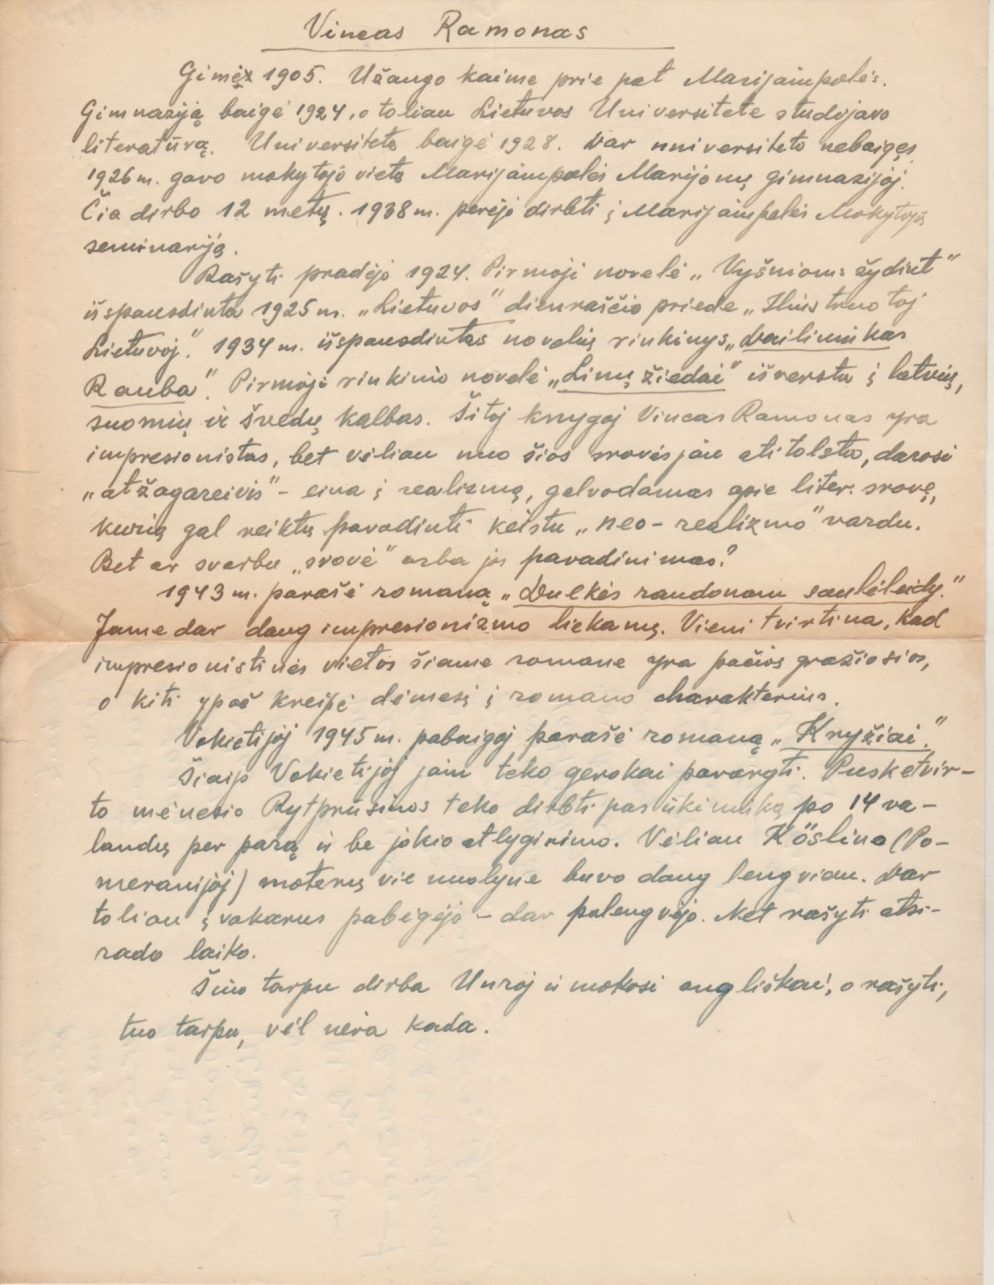 Vincas Ramonas
Gimęs 1905. Užaugo kaime prie pat Marijampolės.
Gimnaziją baigė 1924, o toliau Lietuvos Universitete studijavo
literatūrą. Universitetą baigė 1928. Dar universiteto nebaigęs
1926 m. gavo mokytojo vietą Marijampolės Marijonų gimnazijoj.
Čia dirbo 12 metų. 1938 m. perėjo dirbti į Marijampolės Mokytojų
seminariją.
Rašyti pradėjo 1924. Pirmoji novelė „Vyšniom žydint"
išspausdinta 1925 m. „Lietuvos" dienraščio priede „Iliustruotoj
Lietuvoj". 1934 m. išspausdintas novelių rinkinys „Dailininkas
Rauba". Pirmoji rinkinio novelė „Linų žiedai" išversta į latvių,
suomių ir švedų kalbas. Šitoj knygoj Vincas Ramonas yra
impresionistas, bet vėliau nuo šios srovės jau atitolsta, darosi
„atžagareivis" – eina į realizmą, galvodamas apie liter. srovę,
kurią gal reiktų pavadinti keistu „neo-realizmo" vardu.
Bet ar svarbu „srovė" arba jos pavadinimas?
1943 m. parašė romaną „Dulkės raudonam saulėleidy."
Jame dar daug impresionizmo liekanų. Vieni tvirtina, kad
impresionistinės vietos šiame romane yra pačios gražiosios,
o kiti ypač kreipė dėmesį į romano charakterius.
Vokietijoj 1945 m. pabaigoj parašė romaną „Kryžiai."
Šiaip Vokietijoj jam teko gerokai pavargti. Pusketvir-
to mėnesio Rytprūsiuos teko dirbti pas ūkininką po 14 va-
landų per parą ir be jokio atlyginimo. Vėliau Köslino (Po-
meranijoj) moterų vienuolyne buvo daug lengviau. Dar
toliau į vakarus pabėgėjo – dar palengvėjo. Net rašyti atsi-
rado laiko.
Šiuo tarpu dirba Unroj ir mokosi angliškai, o rašyti,
tuo tarpu, vėl nėra kada.